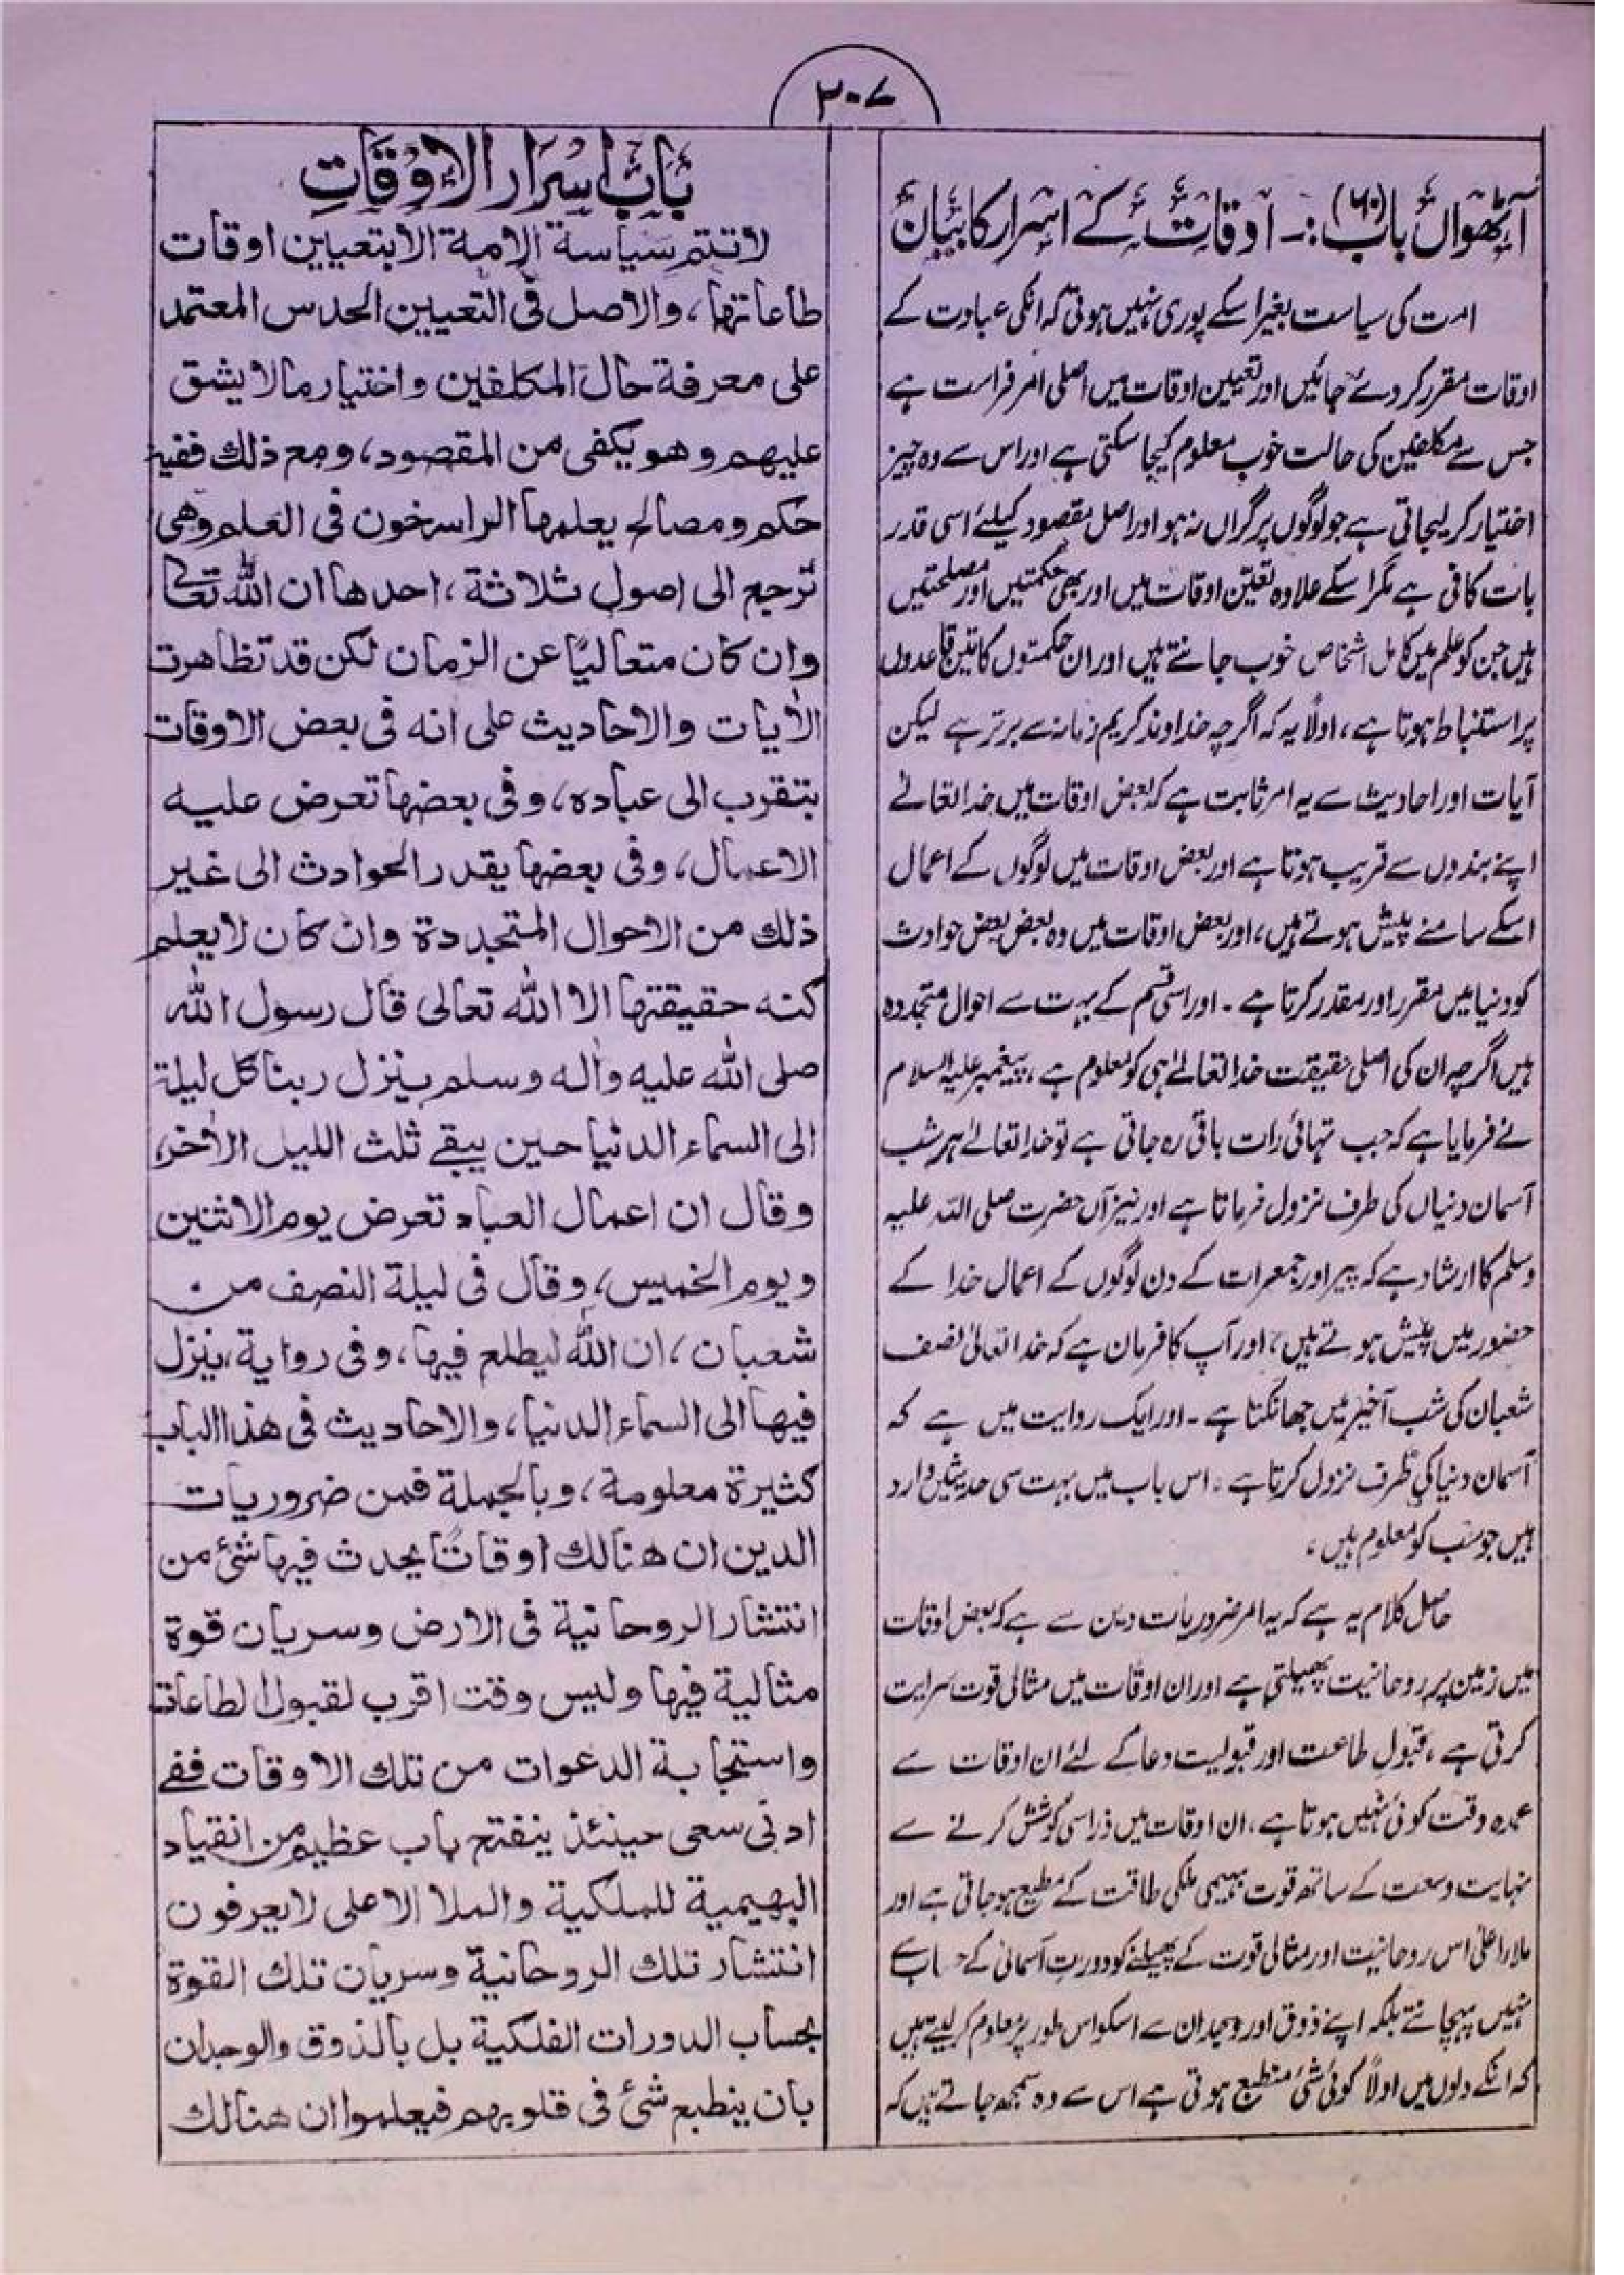 ۳۰۷
آٹھواں باب (۶۰):۔ اوقات کے اسرار کا بیان
امت کی سیاست بغیر اسکے پوری نہیں ہوتی کہ انکی عبادت کے
اوقات مقرر کر دئے جائیں اور تعیین اوقات میں اصلی امر فراست ہے
جس سے مکلفین کی حالت خوب معلوم کیجا سکتی ہے اور اس سے وہ چیز
اختیار کر لیجاتی ہے جو لوگوں پر گراں نہ ہو اور اصل مقصود کیلئے اسی قدر
بات کافی ہے مگر اسکے علاوہ تعیّن اوقات میں اور بھی حکمتیں اور مصلحتیں
ہیں جن کو علم میں کامل اشخاص خوب جانتے ہیں اور ان حکمتوں کا تین قاعدوں
پر استنباط ہوتا ہے، اولاً یہ کہ اگرچہ خداوند کریم زمانہ سے برتر ہے لیکن
آیات اور احادیث سے یہ امر ثابت ہے کہ بعض اوقات میں خدا تعالےٰ
اپنے بندوں سے قریب ہوتا ہے اور بعض اوقات میں لوگوں کے اعمال
اسکے سامنے پیش ہوتے ہیں، اور بعض اوقات میں وہ بعض بعض حوادث
کو دنیا میں مقرر اور مقدر کرتا ہے ۔ اور اسی قسم کے بہت سے احوال متجددہ
ہیں اگرچہ ان کی اصلی حقیقت خدا تعالےٰ ہی کو معلوم ہے، پیغمبر علیہ السلام
نے فرمایا ہے کہ جب تہائی رات باقی رہ جاتی ہے تو خدا تعالےٰ ہر شب
آسمان دنیاں کی طرف نزول فرماتا ہے اور نیز آں حضرت صلی اللہ علیہ
وسلم کا ارشاد ہے کہ پیر اور جمعرات کے دن لوگوں کے اعمال خدا کے
حضور میں پیش ہوتے ہیں، اور آپ کا فرمان ہے کہ خدا تعالیٰ نصف
شعبان کی شب آخیر میں جھانکتا ہے ۔ اور ایک روایت میں ہے کہ
آسمان دنیا کی طرف نزول کرتا ہے ، اس باب میں بہت سی حدیثیں وارد
ہیں جو سب کو معلوم ہیں،
حاصل کلام یہ ہے کہ یہ امر ضروریات دین سے ہے کہ بعض اوقات
میں زمین پر روحانیت پھیلتی ہے اور ان اوقات میں مثالی قوت سرایت
کرتی ہے ، قبول طاعت اور قبولیت دعا کے لئے ان اوقات سے
عمدہ وقت کوئی نہیں ہوتا ہے، ان اوقات میں ذرا سی کوشش کرنے سے
نہایت وسعت کے ساتھ قوت بہیمی ملکی طاقت کے مطیع ہو جاتی ہے اور
ملاء اعلیٰ اس روحانیت اور مثالی قوت کے پھیلنے کو دورت آسمانی کے حساب سے
نہیں پہچانتے بلکہ اپنے ذوق اور وجدان سے اسکو اس طور پر معلوم کر لیتے ہیں
کہ انکے دلوں میں اولاً کوئی شئ منطبع ہوتی ہے اس سے وہ سمجھ جاتے ہیں کہ
باب اسرار الاوقات
لا تتم سیاسة الامة الا بتعیین اوقات
طاعاتها، والاصل فی التعیین الحدس المعتمد
علی معرفة حال المکلفین واختیار ما لا یشق
علیهم وهو یکفی من المقصود، ومع ذلك ففیه
حکم ومصالح یعلمها الراسخون فی العلم وهی
ترجع الی اصول ثلاثة، احدها ان الله تعالے
وان کان متعالیًا عن الزمان لکن قد تظاهرت
الاٰیات والاحادیث علی انه فی بعض الاوقات
یتقرب الی عباده، وفی بعضها تعرض علیه
الاعمال، وفی بعضها یقدر الحوادث الی غیر
ذلك من الاحوال المتجددة وان کان لا یعلم
کنه حقیقتها الا الله تعالی قال رسول الله
صلی الله علیه واٰله وسلم ینزل ربنا کل لیلة
الی السماء الدنیا حین یبقے ثلث اللیل الاٰخر،
وقال ان اعمال العباد تعرض یوم الاثنین
ویوم الخمیس، وقال فی لیلة النصف من
شعبان، ان الله لیطلع فیها، وفی روایة، ینزل
فیها الی السماء الدنیا، والاحادیث فی هذا الباب
کثیرة معلومة، وبالجملة فمن ضروریات
الدین ان هنالك اوقاتًا یحدث فیها شئ من
انتشار الروحانیة فی الارض وسریان قوة
مثالیة فیها ولیس وقت اقرب لقبول الطاعات
واستجابة الدعوات من تلك الاوقات ففے
ادنی سعی حینئذ ینفتح باب عظیم من انقیاد
البهیمیة للملکیة والملا الاعلی لا یعرفون
انتشار تلك الروحانیة وسریان تلك القوة
بحساب الدورات الفلکیة بل بالذوق والوجدان
بان ینطبع شئ فی قلوبهم فیعلموا ان هنالك